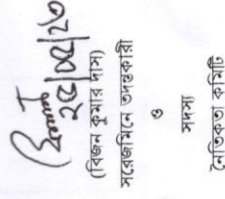 ২৫/০২/২৩
(বিজন কুমার দাস)
সরেজমিনে তদন্তকারী
ও
সদস্য
নৈতিকতা কমিটি